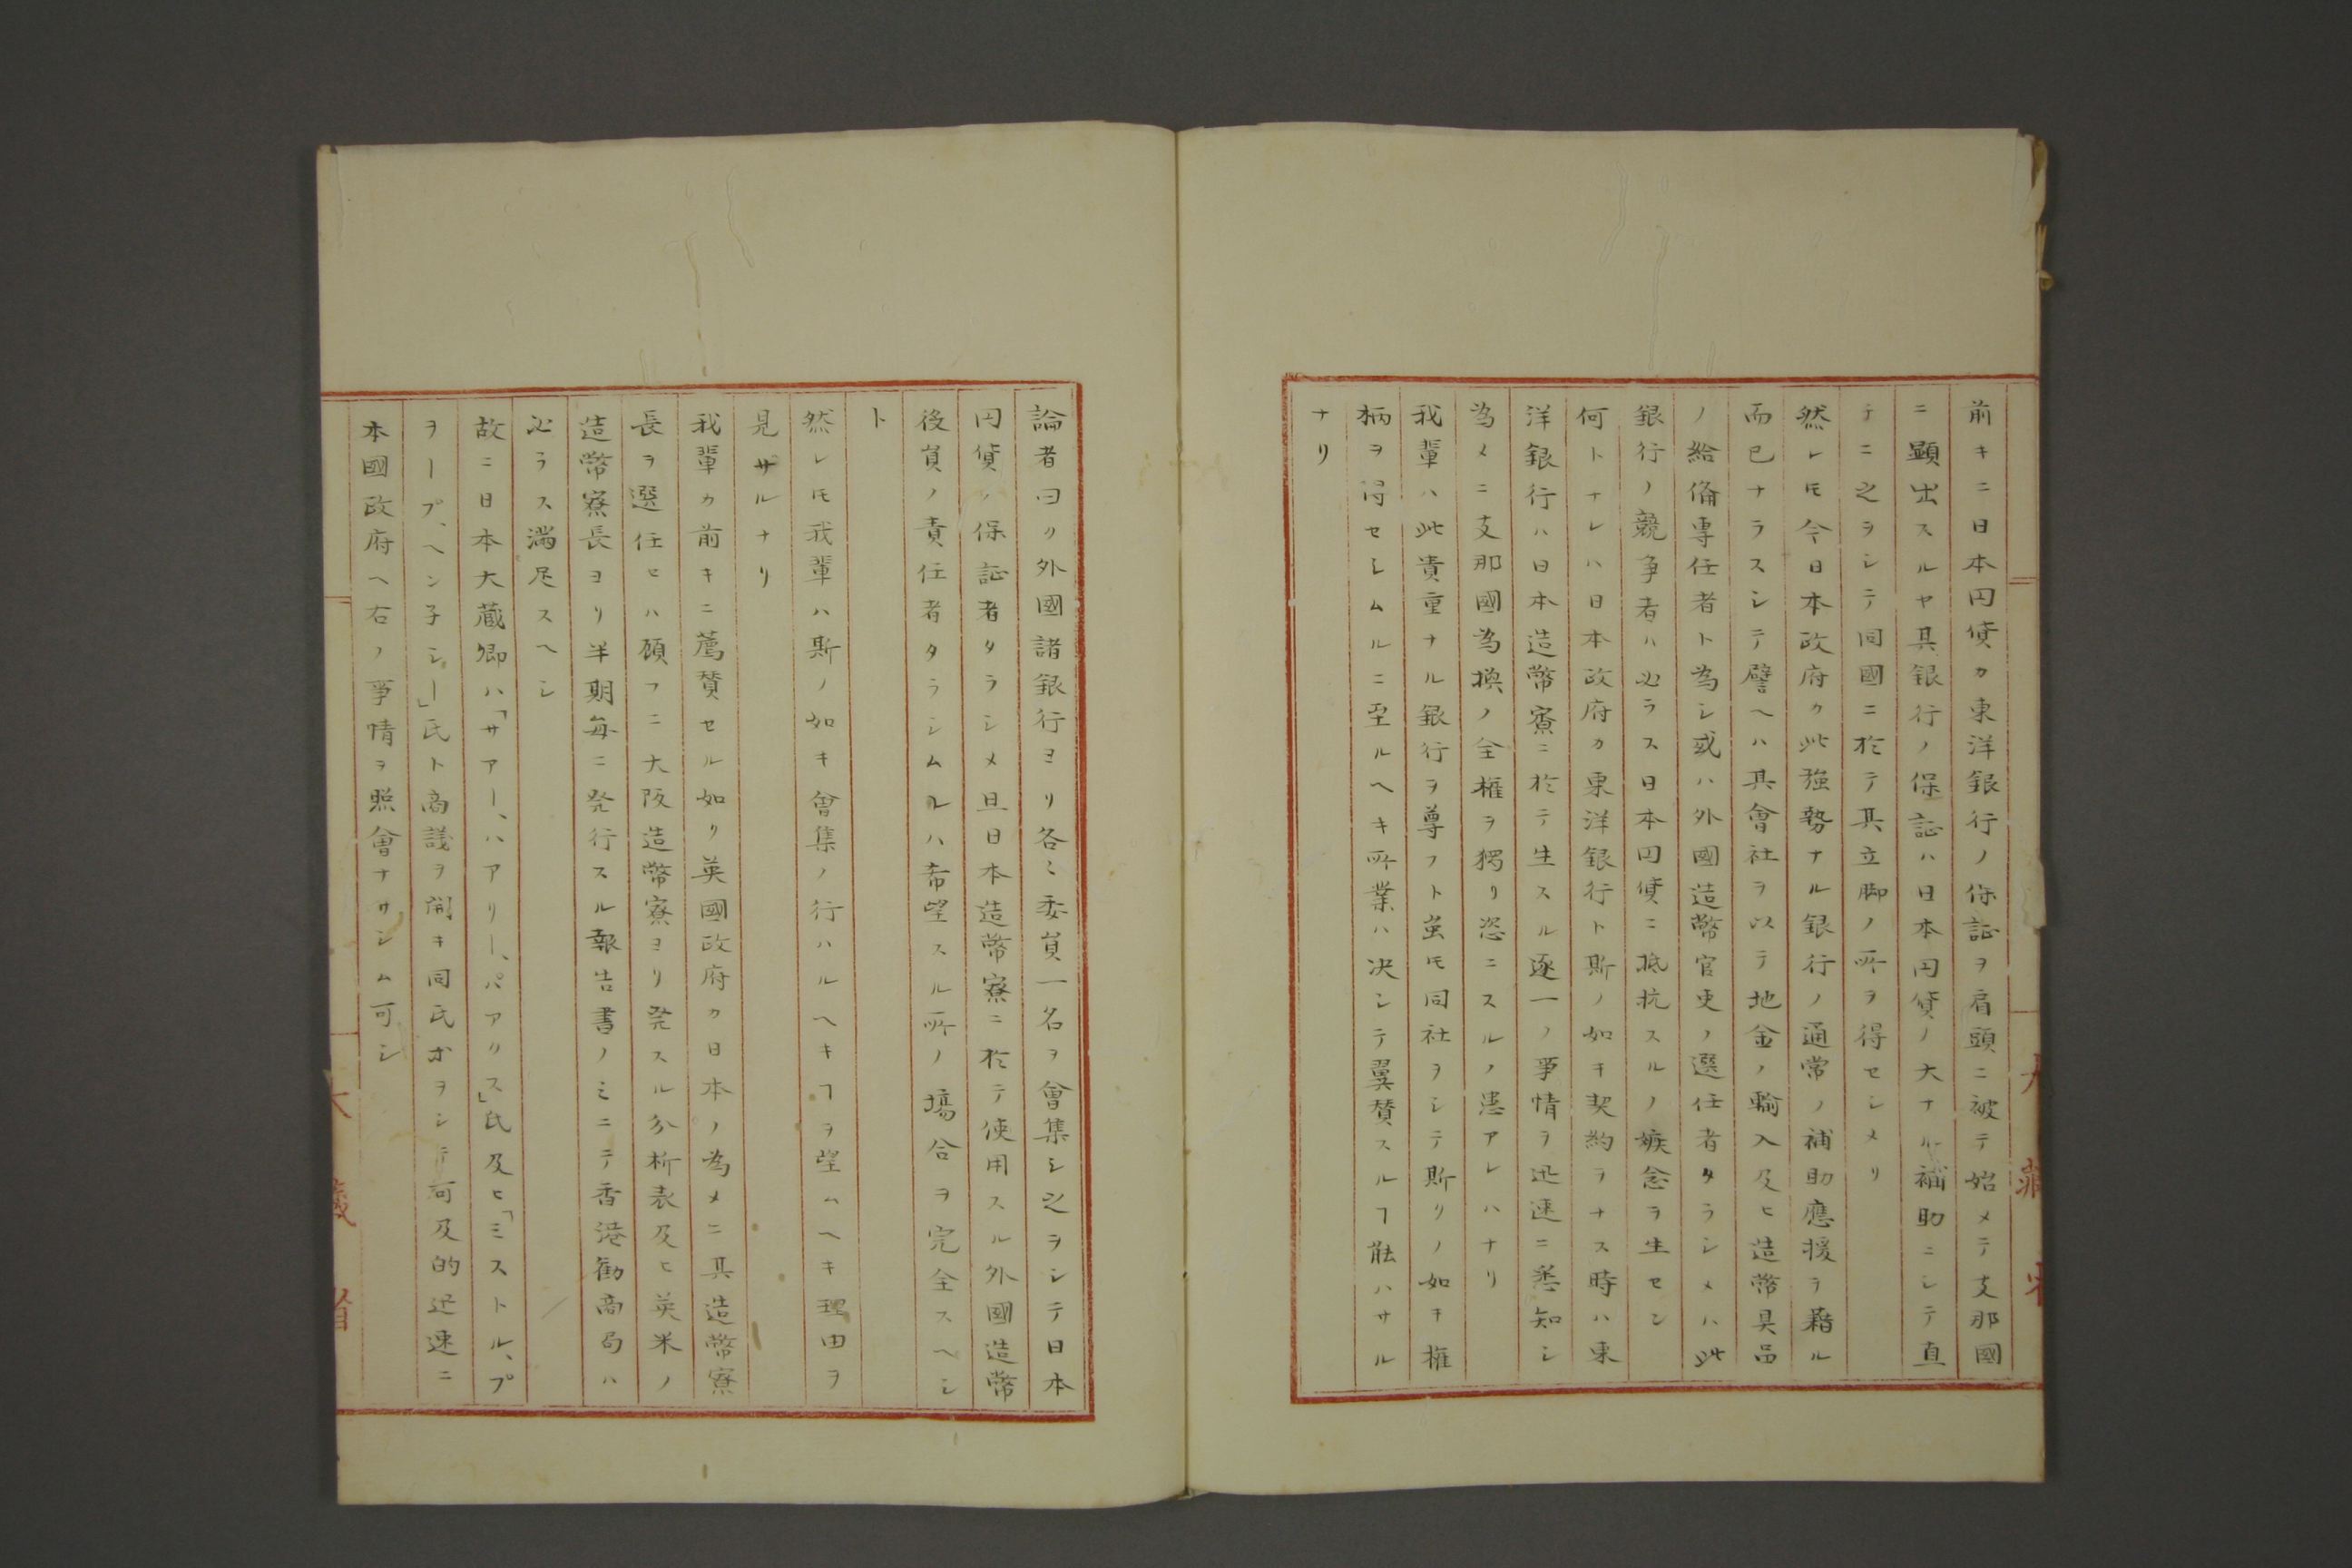 前キニ日本円貨カ東洋銀行ノ保証ヲ肩頭ニ被テ始メテ支那國
ニ顕出スルヤ其銀行ノ保証ハ日本円貨ノ大ナル補助ニシテ直
チニ之ヲシテ同國ニ於テ其立脚ノ所ヲ得セシメリ
然レ𪜈今日本政府カ此強勢ナル銀行ノ通常ノ補助應援ヲ藉ル
而已ナラスシテ譬ヘハ其會社ヲ以テ地金ノ輸入及ヒ造幣具品
ノ給偹専任者ト為シ或ハ外國造幣官吏ノ選任者タラシメハ此
銀行ノ競争者ハ必ラス日本円貨ニ抵抗スルノ嫉念ヲ生セン
何トナレハ日本政府カ東洋銀行ト斯ノ如キ契約ヲナス時ハ東
洋銀行ハ日本造幣寮ニ於テ生スル逐一ノ事情ヲ迅速ニ悉知シ
為メニ支那國為換ノ全権ヲ獨リ恣ニスルノ患アレハナリ
我輩ハ此貴重ナル銀行ヲ尊フト虽𪜈同社ヲシテ斯リノ如キ権
柄ヲ得セシムルニ至ルヘキ所業ハ决シテ翼賛スルヿ能ハサル
ナリ
論者曰ク外國諸銀行ヨリ各〻委員一名ヲ會集シ之ヲシテ日本
円貨ノ保証者タラシメ且日本造幣寮ニ於テ使用スル外國造幣
役員ノ責任者タラシムルハ希望スル所ノ塲合ヲ完全スヘシ
ト
然レ𪜈我輩ハ斯ノ如キ會集ノ行ハルヘキヿヲ望ムヘキ理由ヲ
見ザルナリ
我輩カ前キニ薦賛セル如ク英國政府カ日本ノ為メニ其造幣寮
長ヲ選任セハ願フニ大阪造幣寮ヨリ発スル分析表及ヒ英米ノ
造幣寮長ヨリ半期毎ニ発行スル報告書ノミニテ香港勧商局ハ
必ラス満足スヘシ
故ニ日本大蔵卿ハ「サアー、ハアリー、パアクス」氏及ヒ「ミストル、プ
ヲーブ、ヘン子シー」氏ト商議ヲ開キ同氏ホヲシテ可及的迅速ニ
本國政府ヘ右ノ事情ヲ照會ナサシム可シ
大藏省